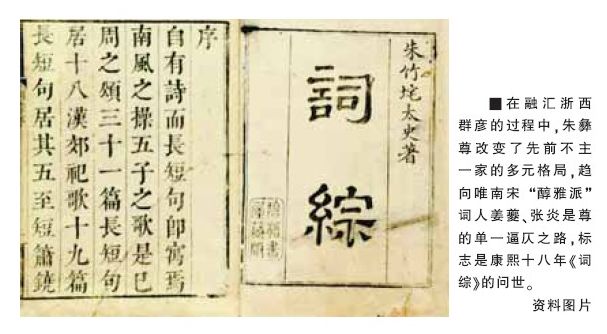 朱竹垞太史著
詞綜
序
自有詩而長短句即寓焉
南風之操五子之歌是已
周之頌三十一篇長短句
居十八漢郊祀歌十九篇
長短句居其五至短簫鐃
■在融汇浙西
群彦的过程中,朱彝
尊改变了先前不主
一家的多元格局,趋
向唯南宋“醇雅派”
词人姜夔、张炎是尊
的单一逼仄之路,标
志是康熙十八年《词
综》的问世。
资料图片